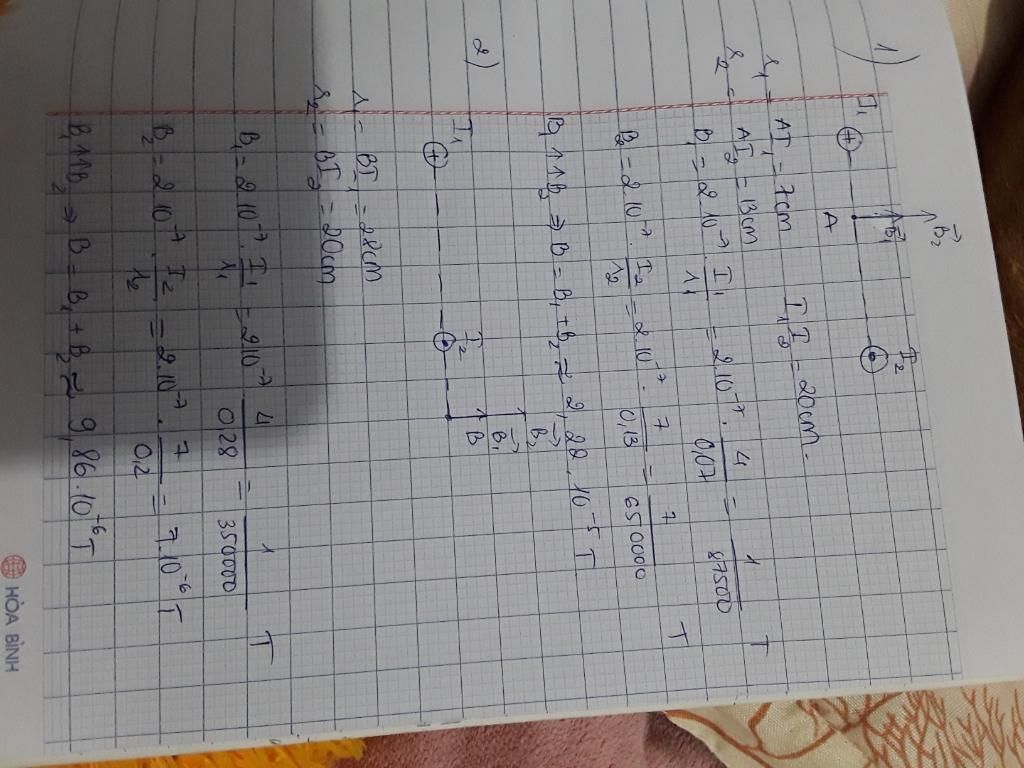 1)
I₁ I₂
A
B⃗₁ B⃗₂
I₁I₂ = 20cm.
r₁ = AI₁ = 7cm
r₂ = AI₂ = 13cm
B₁ = 2.10⁻⁷. I₁/r₁ = 2.10⁻⁷. 4/0,07 = 1/87500 T
B₂ = 2.10⁻⁷. I₂/r₂ = 2.10⁻⁷. 7/0,13 = 7/650000 T
B₁ ↑↑ B₂ ⇒ B = B₁ + B₂ ≈ 2,22.10⁻⁵ T
2)
I₁ I₂
B
B⃗₁ B⃗₂
r₁ = BI₁ = 28cm
r₂ = BI₂ = 20cm
B₁ = 2.10⁻⁷. I₁/r₁ = 2.10⁻⁷ 4/0,28 = 1/350000 T
B₂ = 2.10⁻⁷. I₂/r₂ = 2.10⁻⁷. 7/0,2 = 7.10⁻⁶ T
B₁ ↑↑ B₂ ⇒ B = B₁ + B₂ ≈ 9,86.10⁻⁶ T
HÒA BÌNH